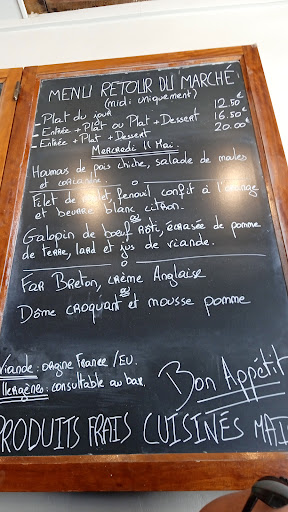 MENU RETOUR DU MARCHÉ
(midi uniquement)
- Plat du jour 12.50€
- Entrée + Plat ou Plat + Dessert 16.50€
- Entrée + Plat + Dessert 20.00€
Mercredi 11 Mai:
Houmous de pois chiche, salade de moules
et
Filet de , fenouil confit à l'orange
et beurre blanc citron.
ou
Galopin de bœuf rôti, écrasée de pomme
de terre, lard et jus de viande.
Far Breton, crème Anglaise
ou
Dôme croquant et mousse pomme
Viande : origine France / EU.
Allergènes : consultable au bar.
Bon Appétit
PRODUITS FRAIS CUISINÉS MAI